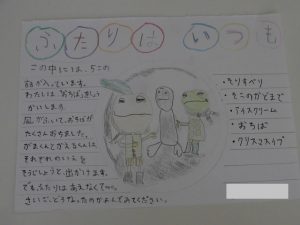 ふたりは いつも
この中には、5この
話が入っています。
わたしは「おちば」をしょう
かいします。
風がふいて、おちばが
たくさんおちました。
がまくんとかえるくんは、
それぞれのいえを
そうじしようと、出かけます。
でも、ふたりはあえなくて…。
さいご、どうなったのかよんでみてください。
・そりすべり
・そこのかどまで
・アイスクリーム
・おちば
・クリスマスイブ